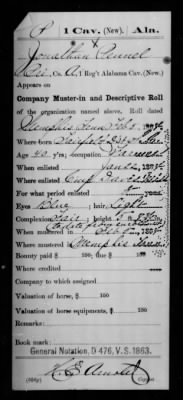 P | 1 Cav. (New). | Ala.
Jonathan Pennel
Co. A, 1 Reg't Alabama Cav. (New.)
Appears on
Company Muster-in and Descriptive Roll
of the organization named above. Roll dated
Memphis Tenn Feb 5, 186
Where born
Age 42 yrs; occupation Farmer
When enlisted Jan 186
Where enlisted Camp Davies
For what period enlisted years.
Eyes Blue; hair, Light
Complexion Fair; height, 5 ft.
When mustered in Feb 5, 186
Where mustered in Memphis Tenn
Bounty paid $ 100; due $ 100
Where credited
Company to which assigned
Valuation of horse, $ 100
Valuation of horse equipments, $ 100
Remarks:
Book mark:
General Notation, D 476, V.S. 1863.
Arnold
Copyist.